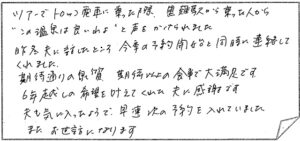 ツアーでトロッコ電車に乗った際、黒部駅から乗った人から
"この温泉は良いわよ"と声をかけられました
昨冬夫に話したところ今季の予約開始と同時に連絡して
くれました。
期待通りの泉質 期待以上の食事で大満足です
6年越しの希望を叶えてくれた夫に感謝です
夫も気に入ったようで早速次の予約を入れていました
またお世話になります